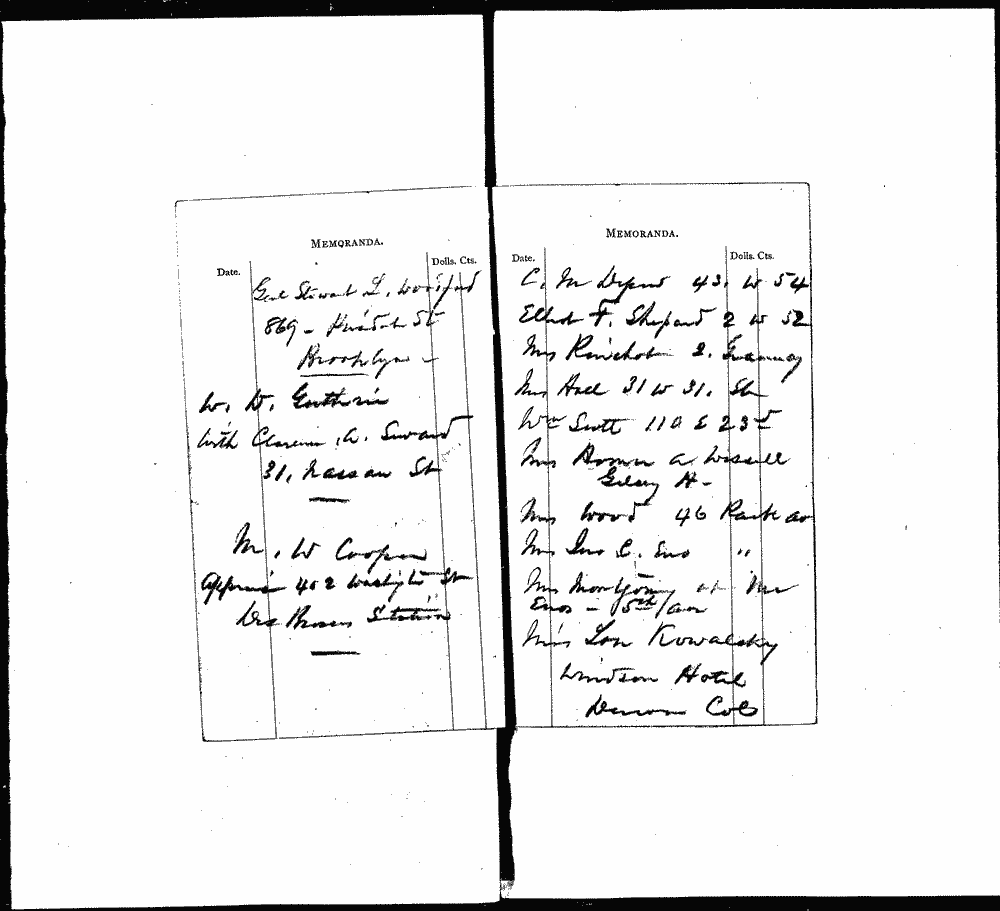 MEMORANDA.
Date. Dolls. Cts.
Genl Stewart L. Woodford
869 - St
Brooklyn -
W. D. Guthrie
With Clarence A. Seward
31, Nassau St
M. W Cooper
402 Washington St
Station
MEMORANDA.
Date. Dolls. Cts.
C. M Depew 43. W 54
Elliot F. Shepard 2 W 52
Mrs 2. Gramercy
Mrs Hall 31 W 31. St
Wm Scott 110 E 23d
Mrs a.
Gilsey H-
Mrs Wood 46 Park av
Mrs Jno C. Eno "
Mrs Montgomy at Mr
Enos - 5th av
Lou Kowalsky
Windsor Hotel
Denver Col